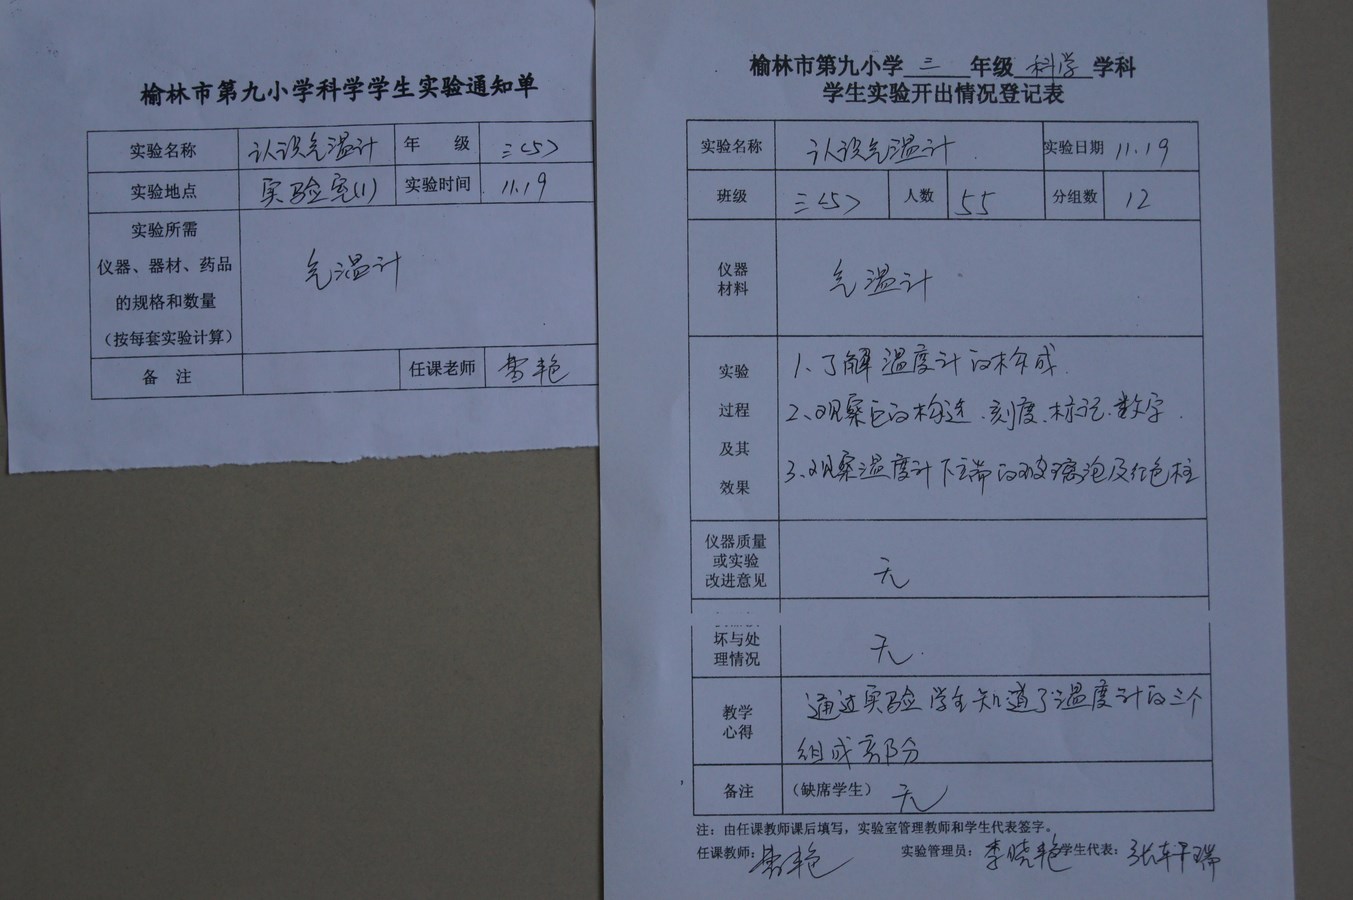 榆林市第九小学科学学生实验通知单
实验名称 认识气温计 年 级 三<5>
实验地点 实验室(1) 实验时间 11.19
实验所需
仪器、器材、药品
的规格和数量
（按每套实验计算）
气温计
备 注 任课老师 艳
榆林市第九小学 三 年级 科学 学科
学生实验开出情况登记表
实验名称 认识气温计 实验日期 11.19
班级 三<5> 人数 55 分组数 12
仪器
材料
气温计
实验
过程
及其
效果
1、了解温度计的构成.
2、观察它的构造、刻度、标记、数字.
3、观察温度计下端的玻璃泡及红色柱
仪器质量
或实验
改进意见
无
坏与处
理情况
无.
教学
心得
通过实验学生知道了温度计的三个
组成部分
备注 （缺席学生） 无
注：由任课教师课后填写，实验室管理教师和学生代表签字。
任课教师： 艳 实验管理员： 李晓艳 学生代表： 张轩瑞